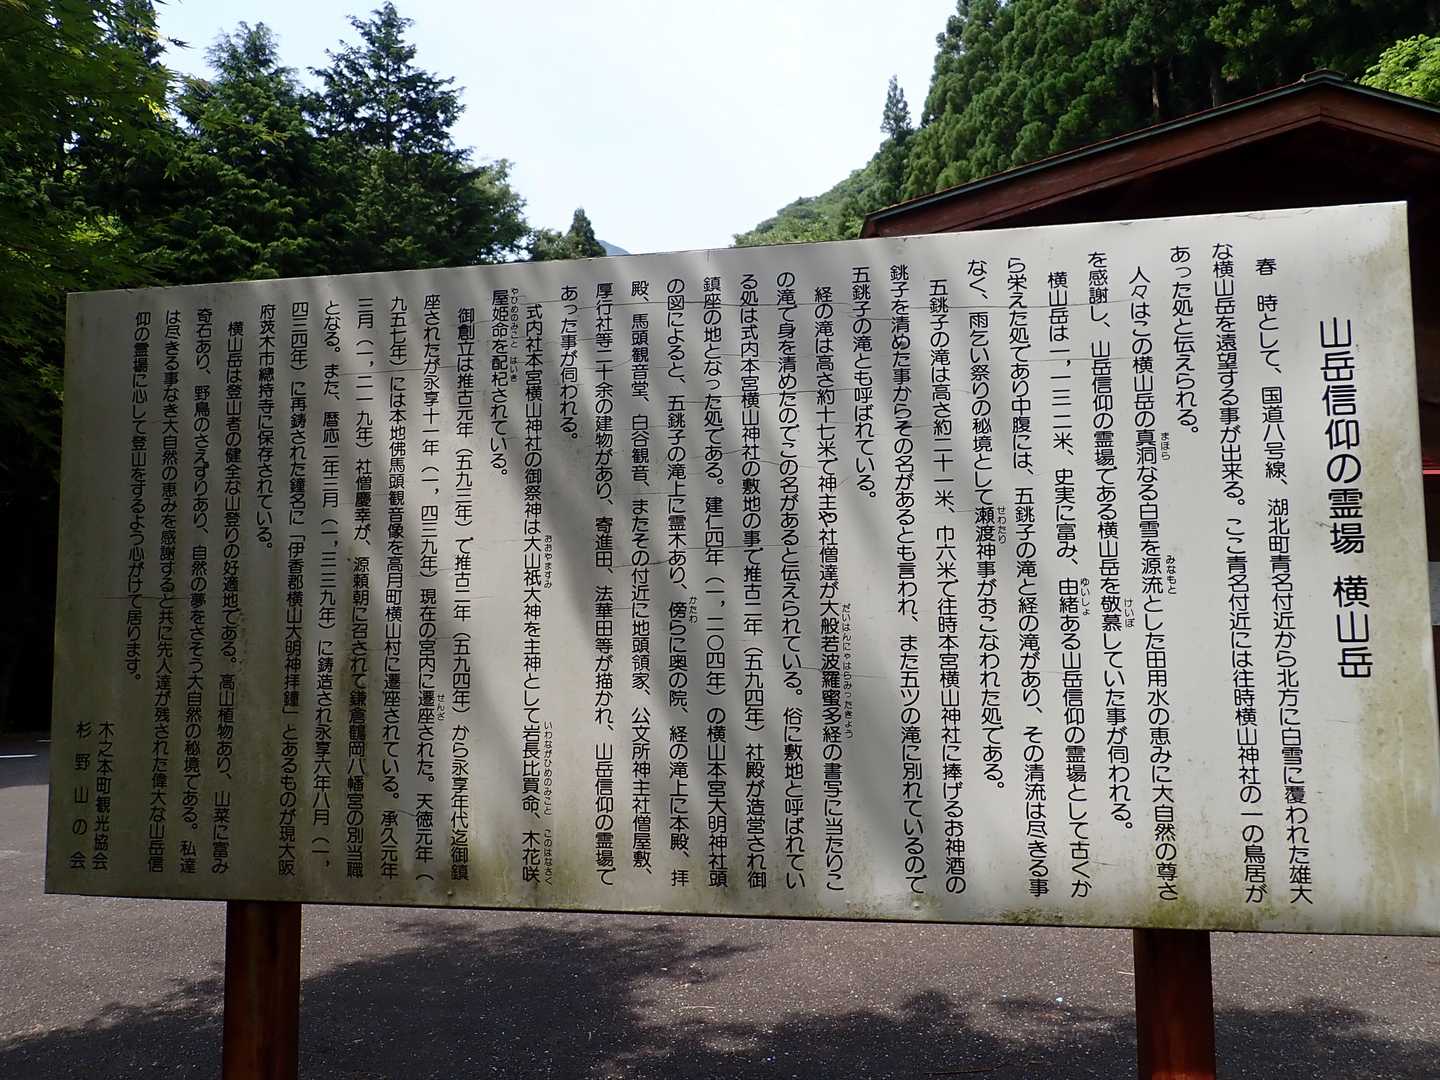 山岳信仰の霊場 横山岳
春 時として、国道八号線、湖北町青名付近から北方に白雪に覆われた雄大
な横山岳を遠望する事が出来る。ここ青名付近には往時横山神社の一の鳥居が
あった処と伝えられる。
人々はこの横山岳の真洞なる白雪を源流とした田用水の恵みに大自然の尊さ
まほら
みなもと
を感謝し、山岳信仰の霊場である横山岳を敬慕していた事が伺われる。
けいぼ
横山岳は一,一三二米、史実に富み、由緒ある山岳信仰の霊場として古くか
ゆいしょ
ら栄えた処てあり中腹には、五銚子の滝と経の滝があり、その清流は尽きる事
なく、雨乞い祭りの秘境として瀬渡神事がおこなわれた処である。
せわたり
五銚子の滝は高さ約二十一米、巾六米で往時本宮横山神社に捧げるお神酒の
銚子を清めた事からその名があるとも言われ、また五ツの滝に別れているので
五銚子の滝とも呼ばれている。
経の滝は高さ約十七米で神主や社僧達が大般若波羅蜜多経の書写に当たりこ
だいはんにゃはらみったきょう
の滝で身を清めたのでこの名があると伝えられている。俗に敷地と呼ばれてい
る処は式内本宮横山神社の敷地の事で推古二年(五九四年)社殿が造営され御
鎮座の地となった処である。建仁四年(一,二〇四年)の横山本宮大明神社頭
の図によると、五銚子の滝上に霊木あり、傍らに奥の院、経の滝上に本殿、拝
かたわ
殿、馬頭観音堂、白谷観音、またその付近に地頭領家、公文所神主社僧屋敷、
厚行社等二十余の建物があり、寄進田、法華田等が描かれ、山岳信仰の霊場で
あった事が伺われる。
式内社本宮横山神社の御祭神は大山祇大神を主神として岩長比買命、木花咲
おおやまずみ
いわながひめのみこと
このはなさく
屋姫命を配祀されている。
やひめのみこと はいき
御創立は推古元年(五九三年)で推古二年(五九四年)から永享年代迄御鎮
座されたが永享十一年(一,四三九年)現在の宮内に遷座された。天徳元年(
せんざ
九五七年)には本地佛馬頭観音像を高月町横山村に遷座されている。承久元年
三月(一,二一九年)社僧慶幸が、源頼朝に召されて鎌倉鶴岡八幡宮の別当職
となる。また、暦応二年三月(一,三三九年)に鋳造され永享六年八月(一,
四三四年)に再鋳された鐘名に「伊香郡横山大明神拝鐘」とあるものが現大阪
府茨木市總持寺に保存されている。
横山岳は登山者の健全な山登りの好適地である。高山植物あり、山菜に富み
奇石あり、野鳥のさえずりあり、自然の夢をさそう大自然の秘境である。私達
は尽きる事なき大自然の恵みを感謝すると共に先人達が残された偉大な山岳信
仰の霊場に心して登山をするよう心がけて居ります。
木之本町観光協会
杉野山の会